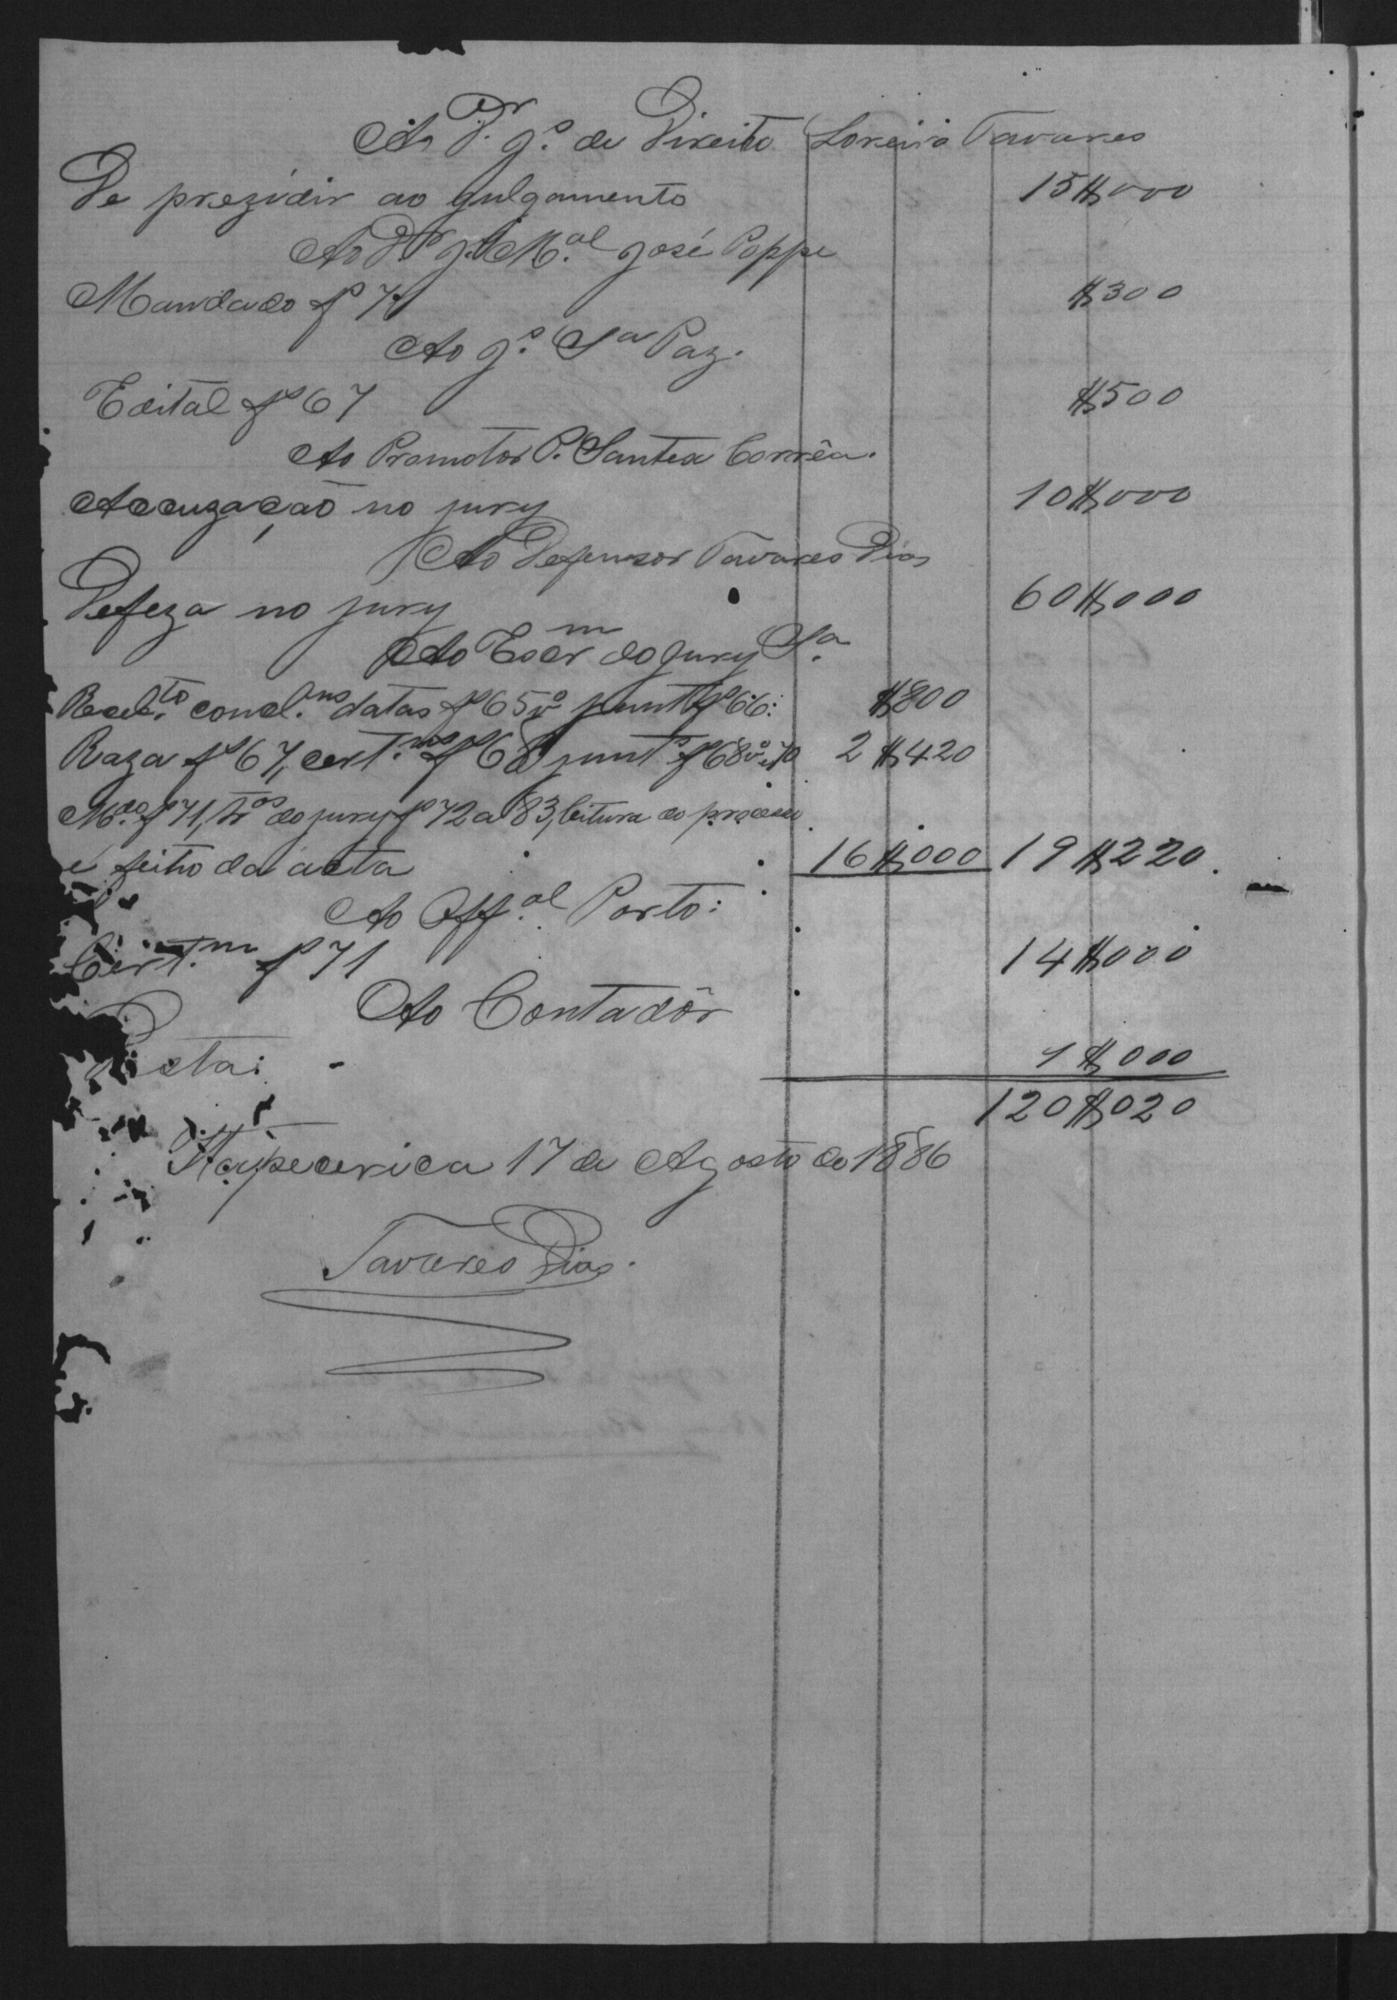 Ao D.r J.º de Direito Loreiro Tavares
De prezidir ao julgamento 15$000
Ao D.r J. M.al José Poppe
Mandado f 71 $300
Ao J.º Sa Paz.
Edital f 67 $500
Ao Promotor P. Santea Corrêa.
Accuzação no jury 10$000
Ao Defensor Tavares Dias
Defeza no jury 60$000
Ao Escr.m do Jury Sa.
Receb.to concl.ms datas f 65vº junt f 66: $800
Raza f 67, cert.ms f 68 junt f 68vº e 70 2$420
M.do f 71, tr.os do jury f 72 a 83, leitura do processo
e feitio da acta 16$000 19$220.
Ao Off.al Porto:
Cert.m f 71 14$000
Ao Contadôr
cta: 1$000
120$020
Itapecerica 17 de Agosto de 1886
Tavares Dias.